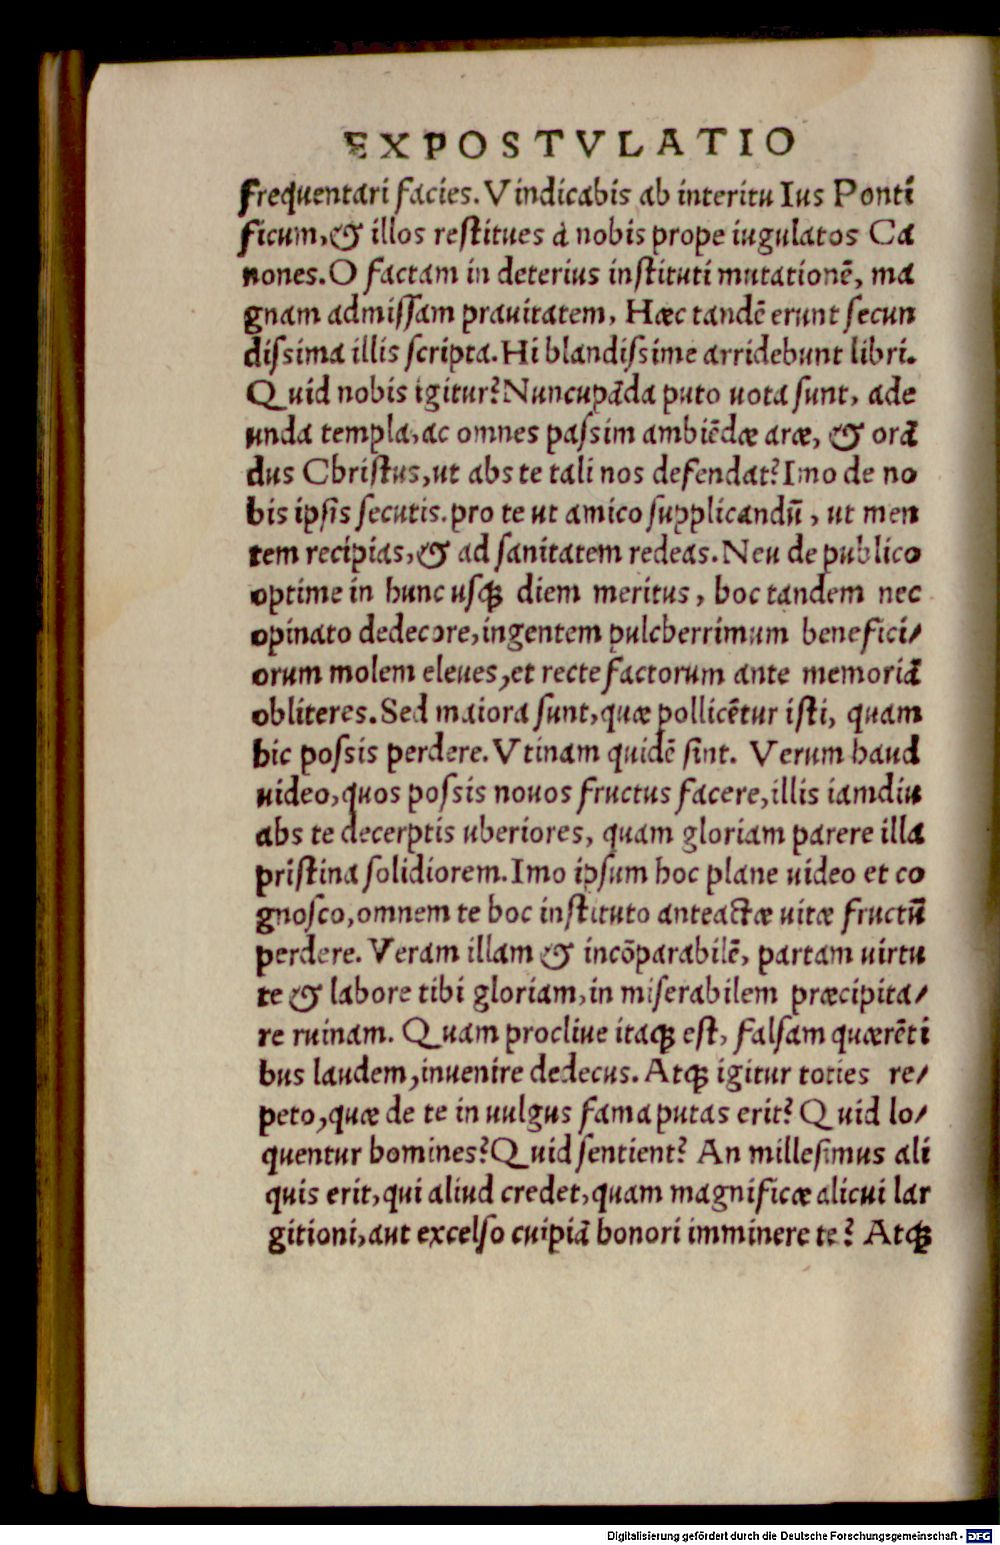 EXPOSTVLATIO
frequentari facies. Vindicabis ab interitu Ius Ponti
ficum, & illos restitues à nobis prope iugulatos Ca
nones. O factam in deterius instituti mutationẽ, ma
gnam admissam prauitatem, Hæc tandẽ erunt secun
dissima illis scripta. Hi blandissime arridebunt libri.
Quid nobis igitur? Nuncupãda puto uota sunt, ade
unda templa, ac omnes passim ambiẽdæ aræ, & orã
dus Christus, ut abs te tali nos defendat? Imo de no
bis ipsis securis. pro te ut amico supplicandũ, ut men
tem recipias, & ad sanitatem redeas. Neu de publico
optime in hunc usq; diem meritus, hoc tandem nec
opinato dedecore, ingentem pulcherrimum benefici/
orum molem eleues, et recte factorum ante memoriã
obliteres. Sed maiora sunt, quæ pollicẽtur isti, quam
hic possis perdere. Vtinam quidẽ sint. Verum haud
uideo, quos possis nouos fructus facere, illis iamdiu
abs te decerptis uberiores, quam gloriam parere illa
pristina solidiorem. Imo ipsum hoc plane uideo et co
gnosco, omnem te hoc instituto anteactæ uitæ fructũ
perdere. Veram illam & incõparabilẽ, partam uirtu
te & labore tibi gloriam, in miserabilem præcipita/
re ruinam. Quam procliue itaq; est, falsam quærẽti
bus laudem, inuenire dedecus. Atq; igitur toties re/
peto, quæ de te in uulgus fama putas erit? Quid lo/
quentur homines? Quid sentient? An millesimus ali
quis erit, qui aliud credet, quam magnificæ alicui lar
gitioni, aut excelso cuipiã honori imminere te? Atq;
Digitalisierung gefördert durch die Deutsche Forschungsgemeinschaft - DFG